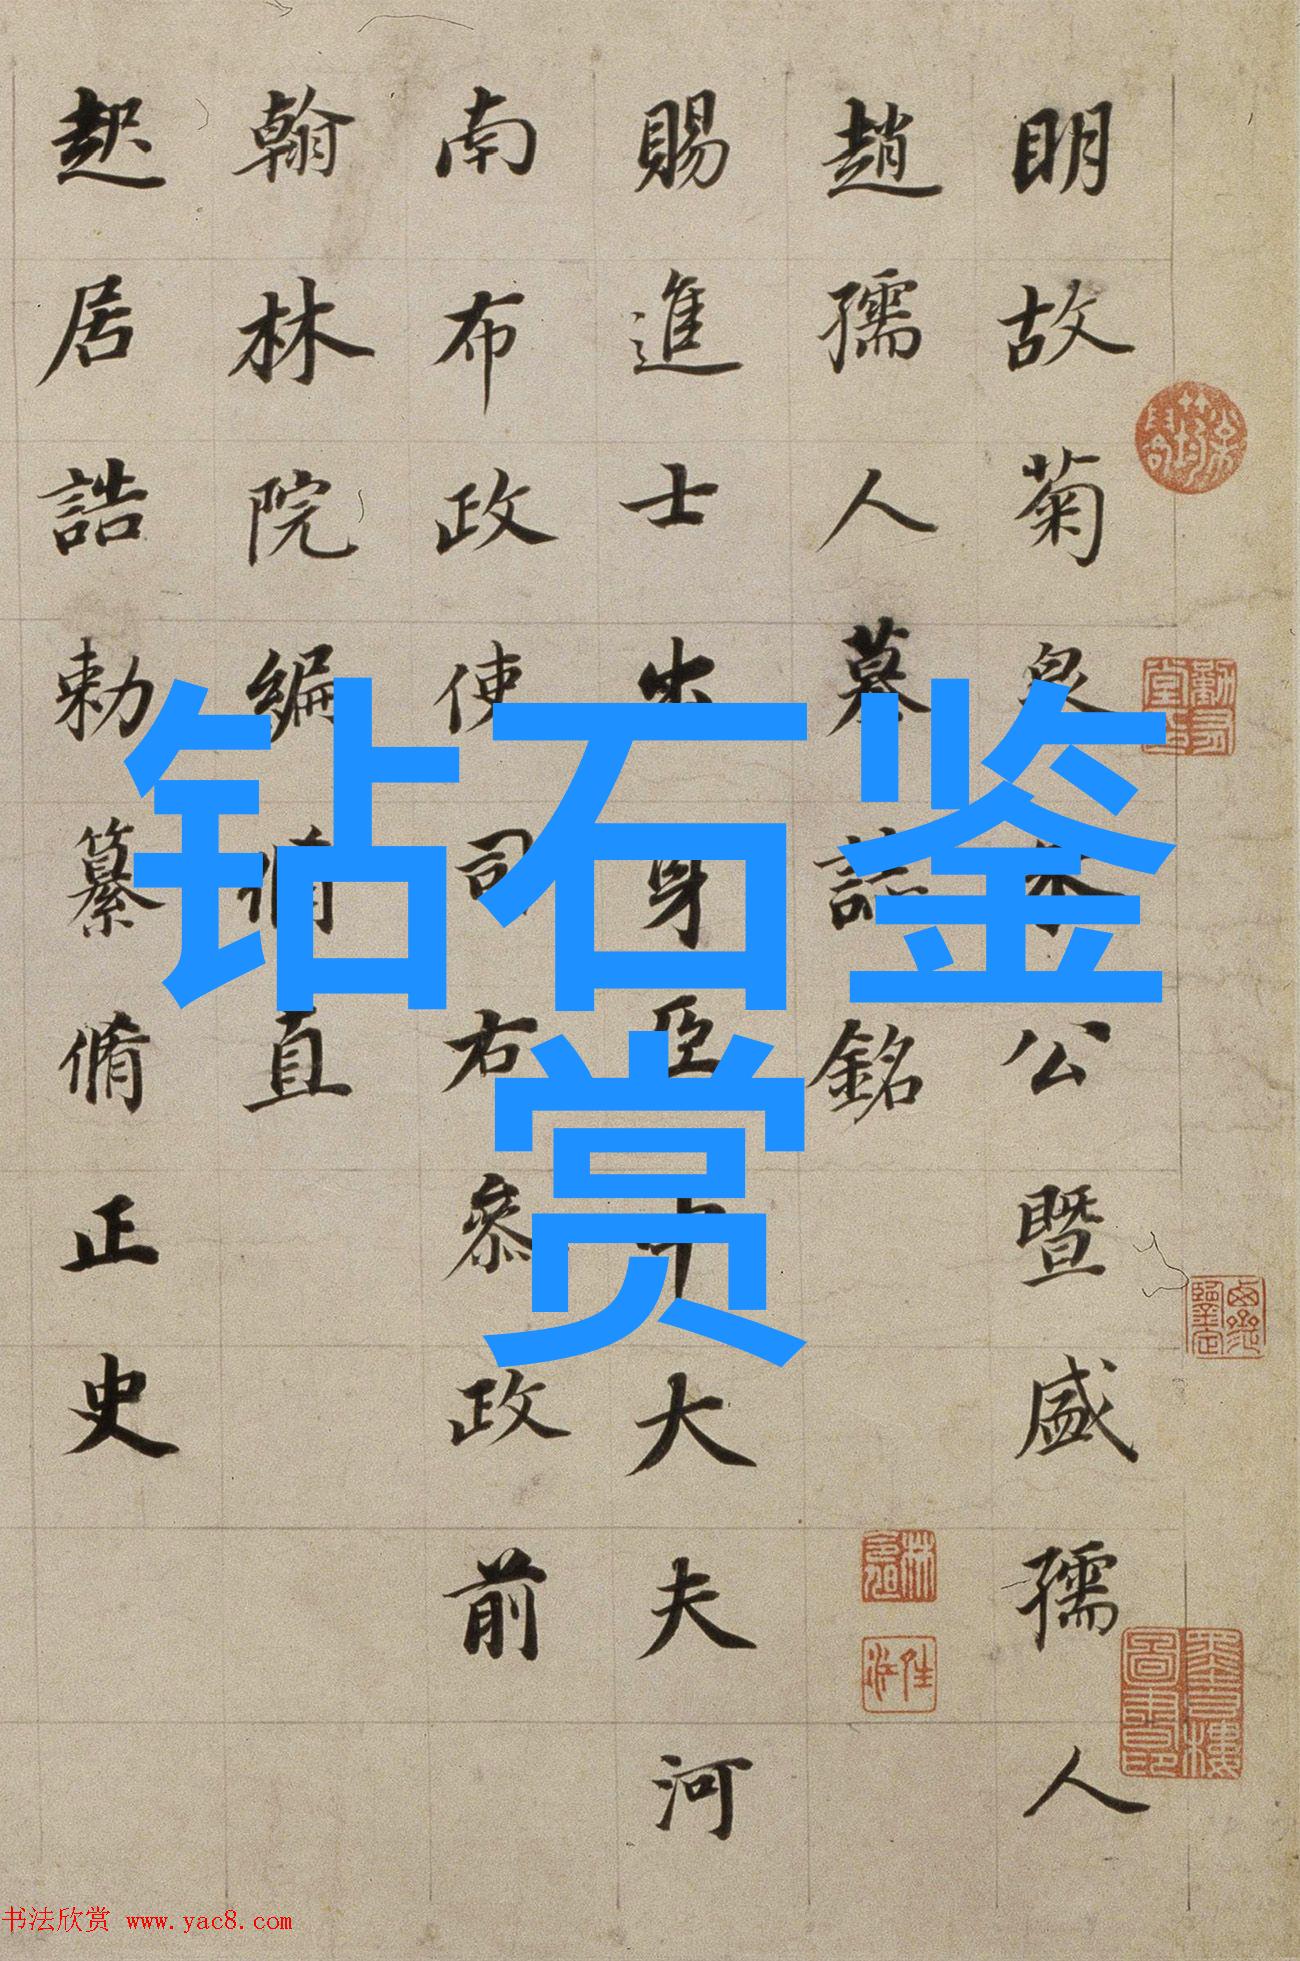 钻石鉴
赏
明故菊泉公暨盛孺人
趙孺人墓誌銘
賜進士出身亞中大夫河
南布政使司右叅政前
翰林院編脩直
起居誥勅纂脩正史
书法欣赏 www.yac8.com